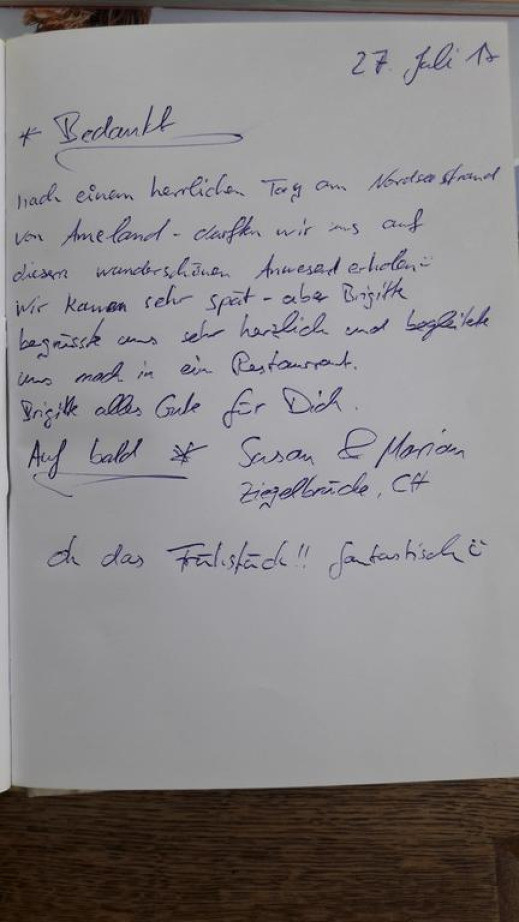 27. Juli 17
* Bedankt
nach einem herrlichen Tag am Nordseestrand
von Ameland - durften wir uns auf
diesem wunderschönen Anwesen erholen
wir kamen sehr spät - aber Brigitte
begrüsste uns sehr herzlich und begleitete
uns noch in ein Restaurant.
Brigitte alles Gute für Dich.
Auf bald * Susan & Marian
Ziegelbrücke, CH
oh das Frühstück!! fantastisch